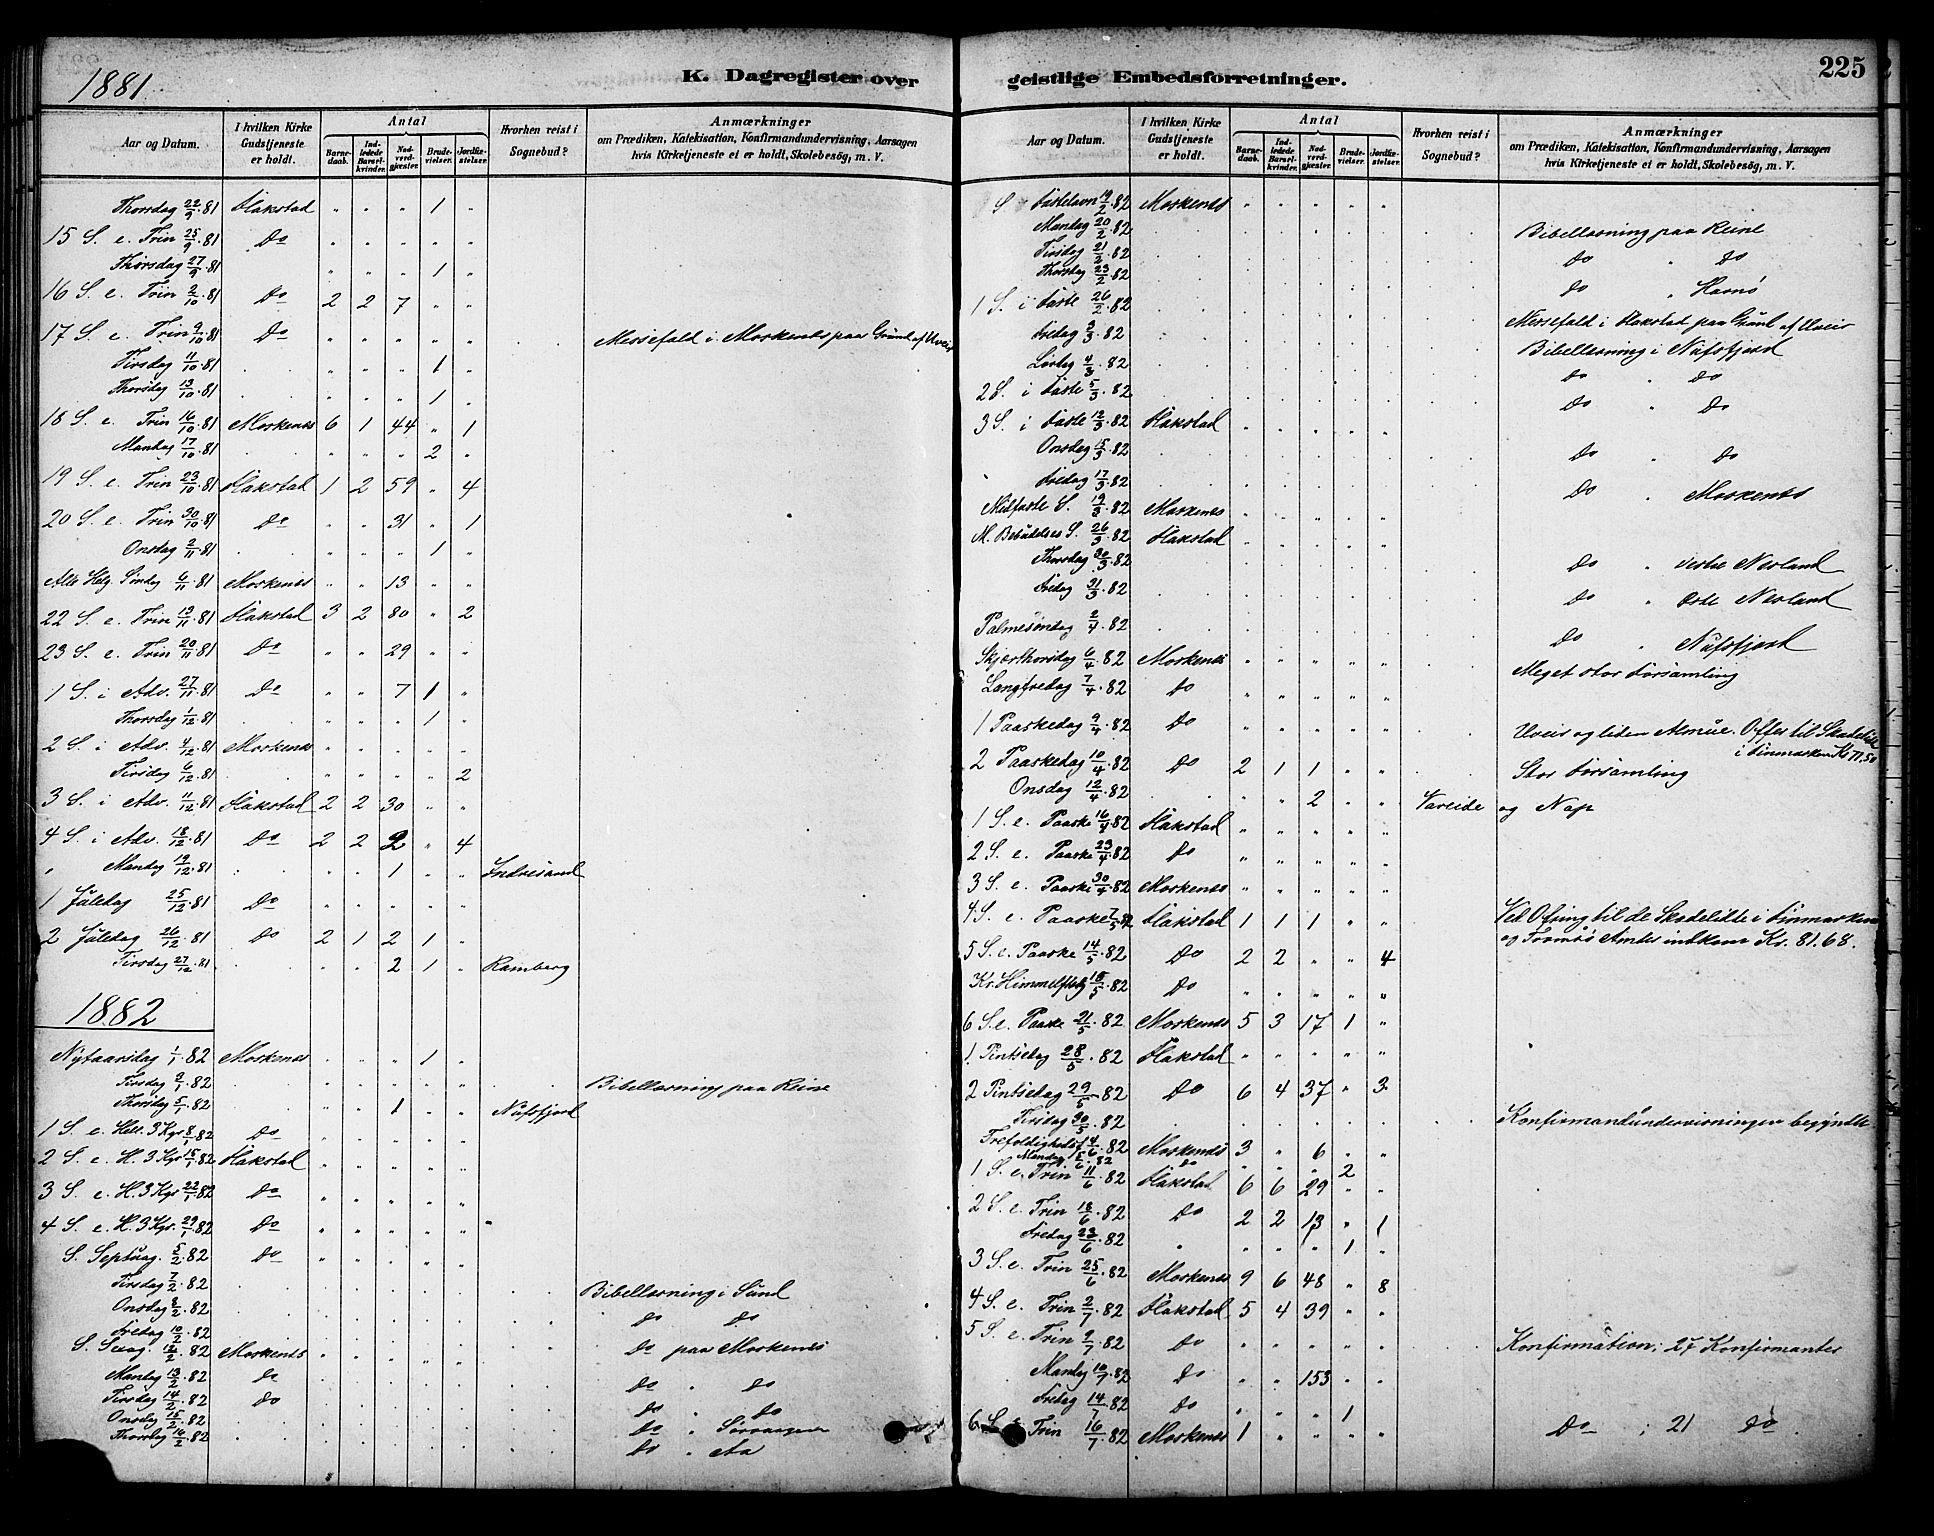 1881
K. Dagregister over
geistlige Embedsforretninger.
225
Aar og Datum.
I hvilken Kirke Gudstjeneste er holdt.
Antal
Barnedaab.
Indledede Barselkvinder.
Nadverdgjester.
Brudevielser.
Jordfæstelser.
Hvorhen reist i Sognebud?
Anmærkninger
om Prædiken, Katekisation, Konfirmandundervisning, Aarsagen
hvis Kirketjeneste ei er holdt, Skolebesög, m. V.
Thorsdag 22/9.81 Flakstad " " " 1 "
15 S. e. Trin 25/9.81 Do " " " " "
Thorsdag 27/9.81 " " " 1 "
16 S. e. Trin 2/10.81 Do 2 2 7 " "
17 S. e. Trin 9/10.81 Do " " " " " Messefald i Moskenes paa Grund af Uveir
Tirsdag 11/10.81 " " " 1 "
Thorsdag 13/10.81 " " " 1 "
18 S. e. Trin 16/10.81 Moskenes 6 1 44 " 1
Mandag 17/10.81 " " " 2 "
19 S. e. Trin 23/10.81 Flakstad 1 2 59 " 4
20 S. e. Trin 30/10.81 Do " " 31 " 1
Onsdag 2/11.81 " " " 1 "
Alle Helg. Søndag 6/11.81 Moskenes " " 13 " "
22 S. e. Trin 13/11.81 Flakstad 3 2 80 " 2
23 S. e. Trin 20/11.81 Do " " 29 " "
1 S. i Adv. 27/11.81 Do " " 7 1 "
Thorsdag 1/12.81 " " " 1 "
2 S. i Adv. 4/12.81 Moskenes " " " " "
Tirsdag 6/12.81 " " " " 2
3 S. i Adv. 11/12.81 Flakstad 2 2 30 " "
4 S. i Adv. 18/12.81 Do 2 2 2 " 4
" Mandag 19/12.81 " " 1 " " Indresand
1 Juledag 25/12.81 Do " " " " "
2 Juledag 26/12.81 Do 2 1 2 1 "
Tirsdag 27/12.81 " " 2 1 " Ramberg
1882
Nytaarsdag 1/1.82 Moskenes " " " 1 "
Tirsdag 3/1.82 " " " " " Bibellæsning paa Reine
Thorsdag 5/1.82 " " 1 " " Nufsfjord
1 S. e. Hell. 3 Kgs 8/1.82 Do " " " " "
2 S. e. H. 3 Kgs 15/1.82 Flakstad " " " " "
3 S. e. H. 3 Kgs 22/1.82 Do " " " " "
4 S. e. H. 3 Kgs. 29/1.82 Do " " " " "
S. Septuag. 5/2.82 Do " " " " "
Tirsdag 7/2.82 Bibellæsning i Sund
Onsdag 8/2.82 Do Do
Fredag 10/2.82 Do paa Moskenes
S. Sexag. 12/2.82 Moskenes " " " " "
Mandag 13/2.82 Do Do " Do
Tirsdag 14/2.82 Do Do " Do
Onsdag 15/2.82 Do " Sørvaagen
Thorsdag 16/2.82 Do " Aa
Aar og Datum.
I hvilken Kirke Gudstjeneste er holdt.
Antal
Barnedaab.
Indledede Barselkvinder.
Nadverdgjester.
Brudevielser.
Jordfæstelser.
Hvorhen reist i Sognebud?
Anmærkninger
om Prædiken, Katekisation, Konfirmandundervisning, Aarsagen
hvis Kirketjeneste ei er holdt, Skolebesög, m. V.
S Fastelavn 19/2.82 Moskenes " " " " "
Mandag 20/2.82 Bibellæsning paa Reine
Tirsdag 21/2.82 Do " Do
Thorsdag 23/2.82 Do " Havnø
1 S. i Faste 26/2.82 Messefald i Flakstad paa Grund af Uveir
Fredag 3/3.82 Bibellæsning i Nufsfjord
Lørdag 4/3.82 Do " Do
2 S. i Faste 5/3.82 Do " Do
3 S. i Faste 12/3.82 Flakstad " " " " "
Onsdag 15/3.82 Do " Do
Fredag 17/3.82 Do " Moskenes
Midfaste S. 19/3.82 Moskenes " " " " "
M. Bebudelses S. 26/3.82 Flakstad " " " " "
Thorsdag 30/3.82 Do " vestre Nesland
Fredag 31/3.82 Do " østre Nesland
Palmesøndag 2/4.82 Do " Nufsfjord
Skjærthorsdag 6/4.82 Moskenes " " " " " Meget stor Forsamling
Langfredag 7/4.82 Do " " " " "
1 Paaskedag 9/4.82 Do " " " " " Uveir og liden Almue. Offer til Skadelidte
i Finmarken Kr 77.50
2 Paaskedag 10/4.82 Do 2 1 1 " " Stor Forsamling
Onsdag 12/4.82 " " 2 " " Vareide og Nap
1 S. e. Paaske 16/4.82 Flakstad " " " " "
2 S. e. Paaske 23/4.82 Do " " " " "
3 S. e. Paaske 30/4.82 Moskenes " " " " "
4 S. e. Paaske 7/5.82 Flakstad 1 1 1 " " Ved Ofring til de Skadelidte i Finmarken
og Tromsø Amter indkom Kr. 81.68.
5 S. e. Paaske 14/5.82 Do 2 2 " " 4
Kr. Himmelfsdg 18/5.82 Do " " " " "
6 S. e. Paaske 21/5.82 Moskenes 5 3 17 1 "
1 Pintsedag 28/5.82 Flakstad " " " " "
2 Pintsedag 29/5.82 Do 6 4 37 " 3
Tirsdag 30/5.82 Konfirmandundervisningen begyndte
Trefoldighedsf 4/6.82 Moskenes 3 " 6 " "
Mandag 5/6.82 Do " " " 2
1 S. e. Trin 11/6.82 Flakstad 6 6 29 " "
2 S. e. Trin 18/6.82 Do 2 2 13 " 1
Fredag 23/6.82 " " " " 1 "
3 S. e. Trin 25/6.82 Moskenes 9 6 48 " 8
4 S. e. Trin 2/7.82 Flakstad 5 4 39 " "
5 S. e. Trin 9/7.82 Do " " " " " Konfirmation; 27 Konfirmanter
Mandag 10/7.82 Do " " 153 " "
Fredag 14/7.82 Do " " " 1 "
6 S. e. Trin 16/7.82 Moskenes 1 " " " " Do ; 21 Do